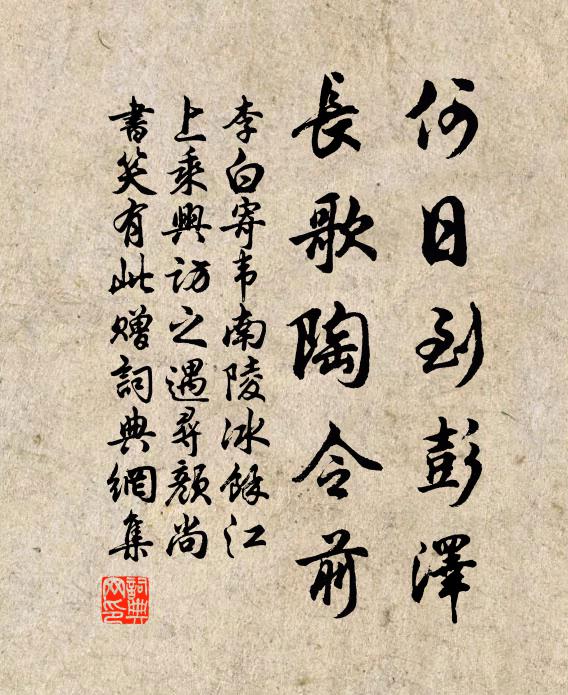 何日到彭澤
長歌陶令前
李白寄韦南陵冰餘江
上乘興訪之遇尋顏尚
書笑有此贈詞典網集
詞典
网印